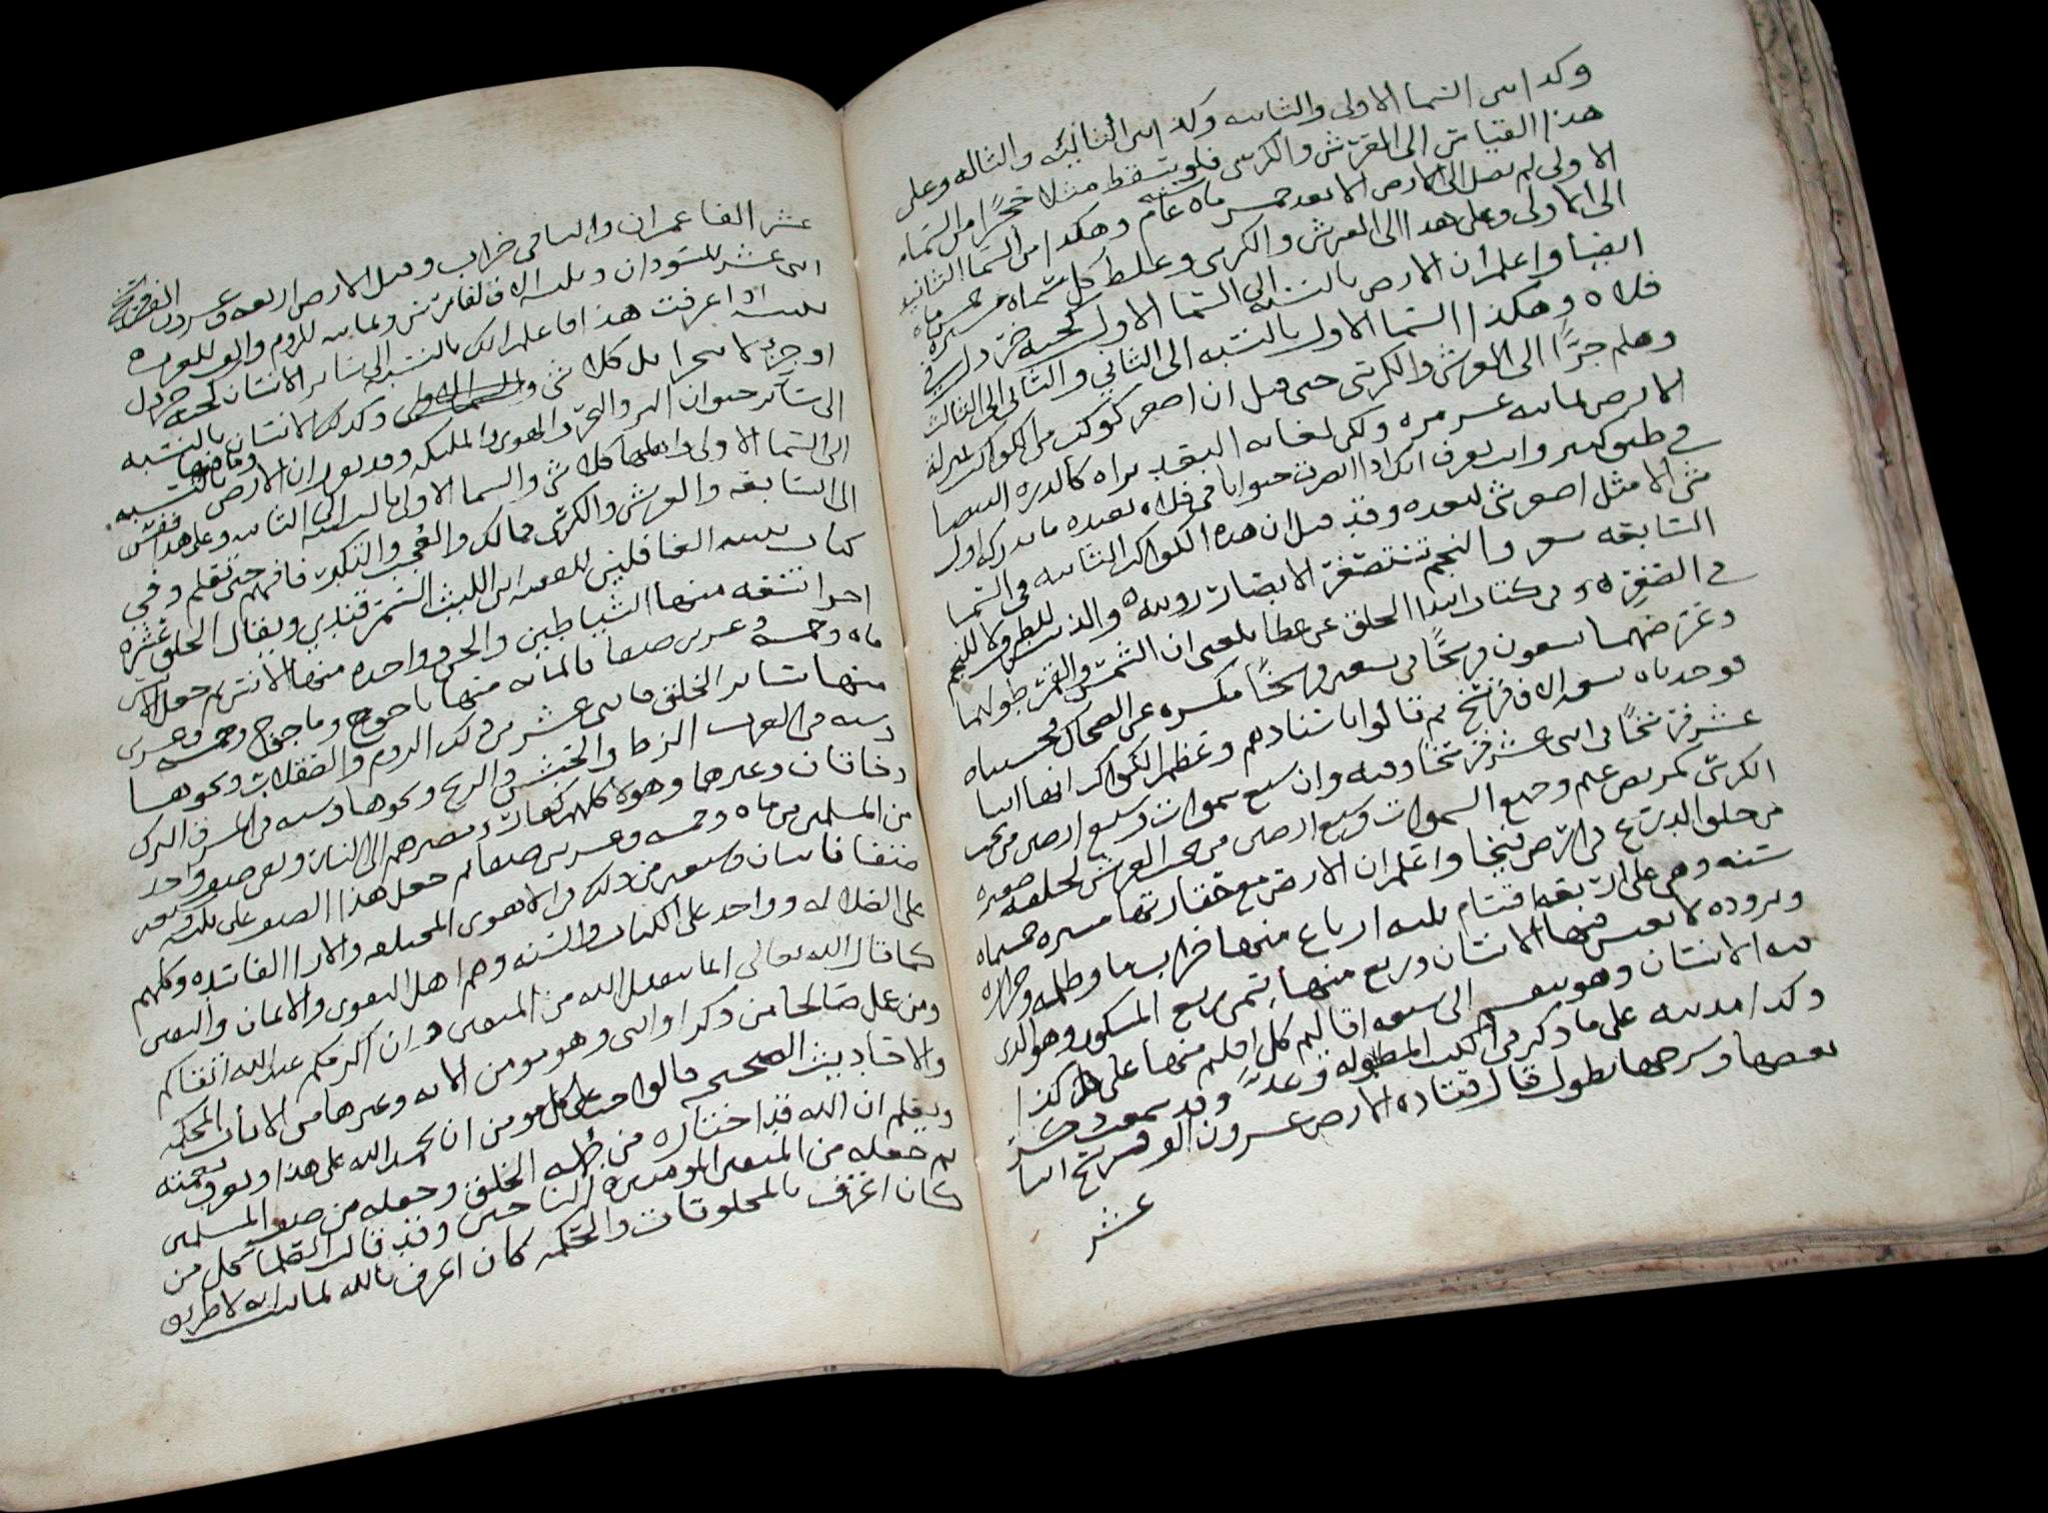 وكذا بين السما الاولى والثانيه وكذا بين الثانيه والثالثه وعلى
هذا القياس الى العرش والكرسي فلو سقط مثلا حجرًا من السماء
الاولى لم يصل الى الارض الا بعد خمس مائة عام وهكذا من السما الثانيه
الى الاولى وعلى هذا الى العرش والكرسي وغلظ كل سماء مسيرة خمس مائة
ايضا واعلم ان الارض بالنسبه الى السما الاولى كحبة خردل في
فلاه وهكذا السما الاولى بالنسبه الى الثاني والثاني الى الثالث
وهلم جرًّا الى العرش والكرسي حتى قيل ان اصغر كوكب من الكواكب
الارض ثمانيه عشر مره ولكن لغاية البعد يراه كالدره البيضا
في طبق كبير وانت تعرف انك اذا ابصرت حيوانا في فلاه بعيده ما تدركه اول
شي الا مثل اصغر شي لبعده وقد قيل ان هذه الكواكب الثابته في السما
السابعه شعر والنجم تستصغر الابصار رويته والذنب للطرف لا للنجم
في الصغر وفي كتاب ابتدا الخلق عن عطا بلغني ان الشمس والقمر طولهما
وعرضهما تسعون فرسخًا في تسعين فرسخًا مكسره عن الضحاك فحسبناه
فوجدناه تسعه الاف فرسخ ثم قالوا باسنادهم وعظم الكواكب انها اثنا
عشر فرسخًا في اثنى عشر فرسخًا وفيه وان سبع سموات وسبع ارضين من تحت
الكرسي وجميع السموات وسبع ارضين من تحت العرش كحلقه صغيره
من حلق الدرع في ارض فيحا واعلم ان الارض مع حقارتها مسيره خمسماه
سنه وهي على اربعه اقسام ثلثه ارباع منها خراب ما وظلمه وحراره
وبروده لا يعيش فيها الانسان وربع منها يسمى ربع المسكون وهو الذي
فيه الانسان وهو ينقسم الى سبعه اقاليم كل اقليم منها على كذا
وكذا مدينه على ما ذكر في الكتب المطوله وقد
بعضها وشرحها يطول قال قتاده الارض عشرون الف فرسخ اثنا
عشر
عشر الفا عمران والباقي خراب وقيل الارض اربعه وعشرون الف فرسخ
اثنى عشر للسودان وثلثه الاف لفارس وثمانيه للروم والف للعرب
اذا عرفت هذا فاعلم انك بالنسبه الى ساير الانسان كحبة خردل
او جزء لا يتجزا بل كلا شي وكذلك الانسان بالنسبه
الى ساير حيوان البر والبحر والهوى والمليكه وقد يعبر ان الارض وما فيها بالنسبه
الى السما الاولى واهلها كلا شي والسما الاولى بالنسبه الى الثانيه وعلى هذا فقس
الى السابعه والعرش والكرسي فمالك والعجب والتكبر فافهم حتى تعلم وفي
كتاب تنبيه الغافلين للفقيه ابي الليث السمرقندي ويقال الخلق عشره
اجزا تسعه منها الشياطين والجن وواحده منها الانس ثم جعل الانس
ماه وخمسه وعشرين صنفا فالمايه منها ياجوج وماجوج وخمسه وعشرين
منها ساير الخلق فاثنى عشر من ذلك الروم والصقلاب ونحوها
وسته في الغرب الزط والحبش والزنج ونحوها وسته في المشرق الترك
وخاقان وغيرهما وهؤلا كلهم كفار ومصيرهم الى النار وبقي صنف واحد
من المسلمين من ماه وخمسه وعشرين صنفا ثم جعل هذا الصنف على ثلثه وسبعين
صنفا فاثنان وسبعين من ذلك في الاهوى المختلفه والارا الفاسده وكلهم
على الضلاله وواحد على الكتاب والسنه وهم اهل التقوى والايمان واليقين
كما قال الله تعالى انما يتقبل الله من المتقين وان اكرمكم عند الله اتقاكم
ومن عمل صالحا من ذكر او انثى وهو مومن الايه وغيرها من الايات المحكمه
والاحاديث الصحيحه قالوا حق على كل مومن ان يحمد الله على هذا ويعرف نعمته
ويعلم ان الله قد اختاره من جمله الخلق وجعله من صنف المسلمين
ثم جعله من المتقين الناجين وقد قالت العلما كل من
كان اعرف بالمخلوقات والحكمه كان اعرف بالله لما لا طريق